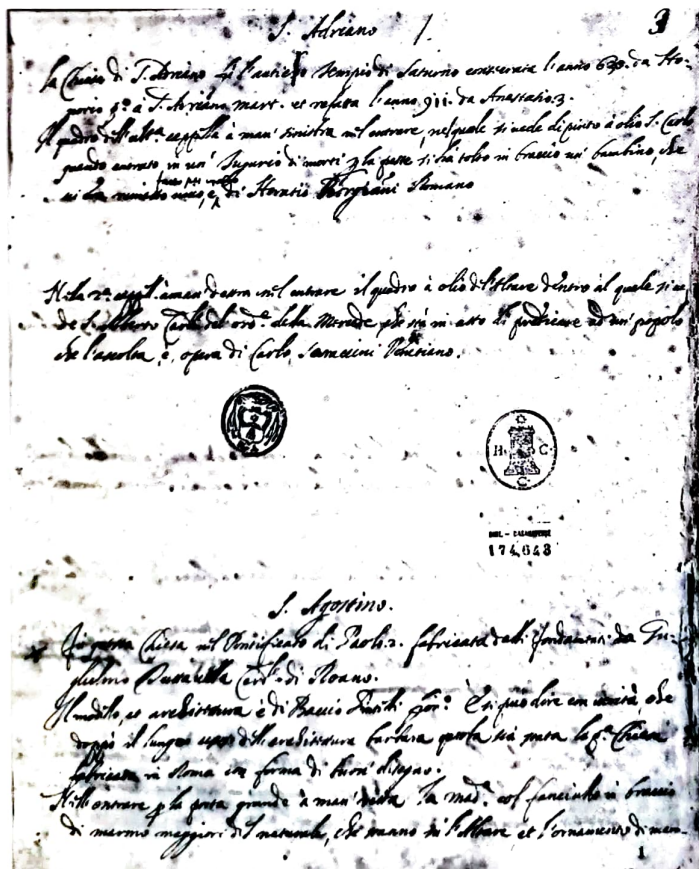 S. Adriano 1 3
La Chiesa di S. Adriano fù l'antico Tempio di Saturno consecrata l'anno 630. da Ho-
norio p.º à S. Adriano mart. et refatta l'anno 911. da Anastasio 3.
Il quadro dell'alt.e cappella à man' sinistra nel entrare, nel quale si vede dipinto à olio S. Carlo
quando entrato in un' Tugurio di morti p la peste si hà tolto in braccio un' bambino, che
di Horatio Borgiani Romano
Nella 2.a capp.a à man' destra nel entrare il quadro à olio dell'Altare dentro al quale si ve-
de S. del ord.e della Mercede, che stà in atto di predicare ad un' popolo
che l'ascolta, è, opera di Carlo Saracini Venetiano.
H. C.
C
BIBL. - CASANATENSE
174648
S. Agostino.
In questa Chiesa nel Pontificato di Paolo 2. fabricata dalli fondamenti da Gu-
glielmo Card.e di Roano.
Il modello, et architettura è di Baccio Pintelli fior.º E si può dire con verità, che
doppò il lungo uso dell'architettura barbara questa sia stata la p.a Chiesa
fabricata in Roma con forma di buon' disegno.
Nell'entrare p la porta grande à man' la mad.a col fanciullo in braccio
di marmo maggiori del naturale, che stanno sù l'Altare et l'ornamento di mar-
1